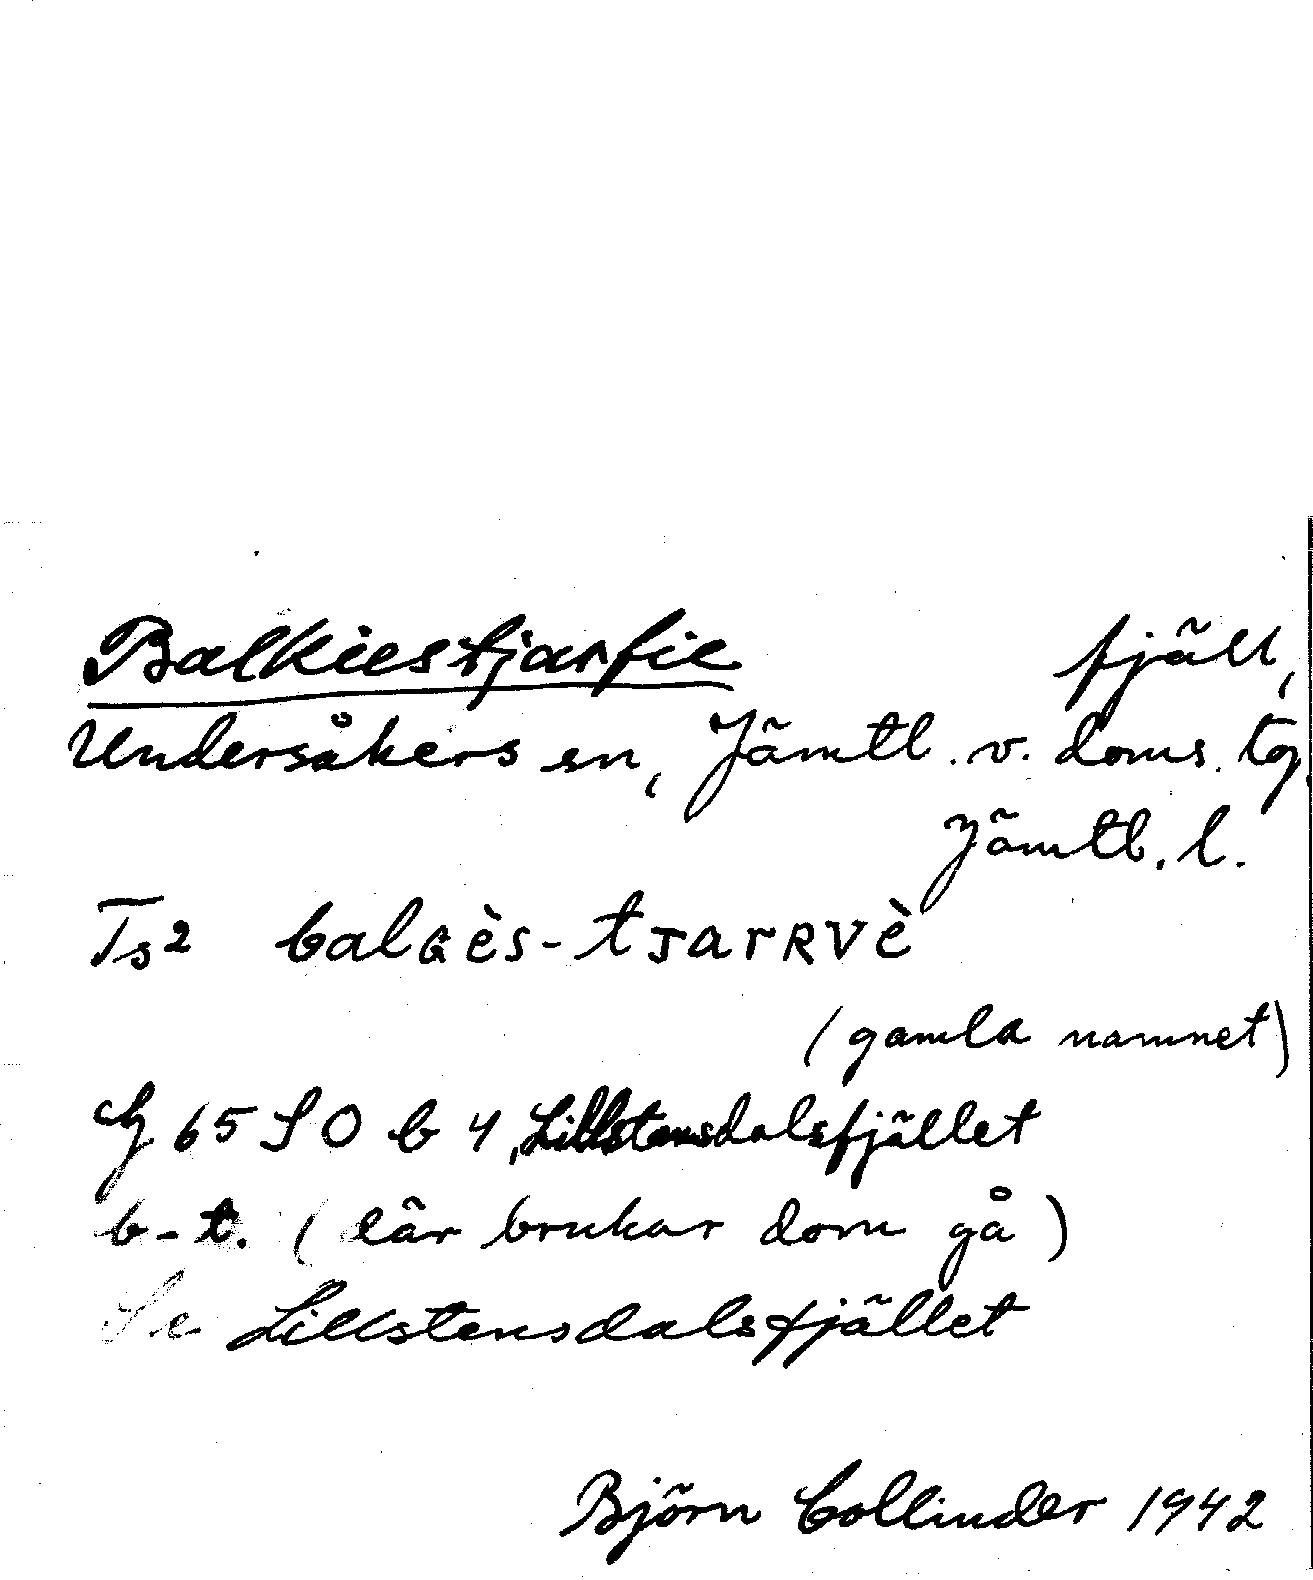 Balkiestjarfie fjäll,
Undersåkers sn, Jämtl. v. doms. tg.
Jämtl. l.
Ts2 balGès-tJarRVè
(gamla namnet)
G 65 SO b 4, Lillstensdalsfjället
b-t. (lär brukar dom gå)
Se Lillstensdalsfjället
Björn Collinder 1942